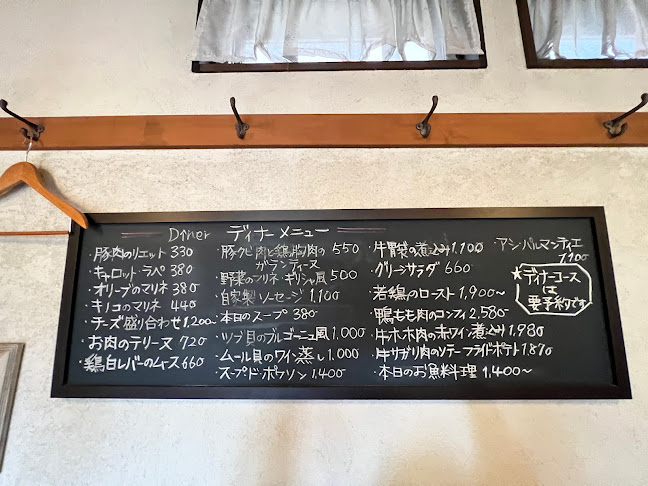 Dıner ディナーメニュー
・豚肉のリエット 330
・キャロット・ラペ 380
・オリーブのマリネ 380
・キノコのマリネ 440
・チーズ盛り合わせ 1.200~
・お肉のテリーヌ 720
・鶏白レバーのムース 660
・豚クビ肉と鶏胸肉の 550
ガランティーヌ
・野菜のマリネ ギリシャ風 500
・自家製ソーセージ 1,100
・本日のスープ 380
・ツブ貝のブルゴーニュ風 1.000
・ムール貝のワイン蒸し 1.000
・スープドポワソン 1.400
・牛胃袋の煮込み 1.100
・グリーンサラダ 660
・若鶏のロースト 1,900~
・鴨もも肉のコンフィ 2.580
・牛ホホ肉の赤ワイン煮込み 1.980
・牛サガリ肉のソテーフライドポテト 1.870
・本日のお魚料理 1,400~
・アシ・パルマンティエ
1100
★ディナーコース
は
要予約です